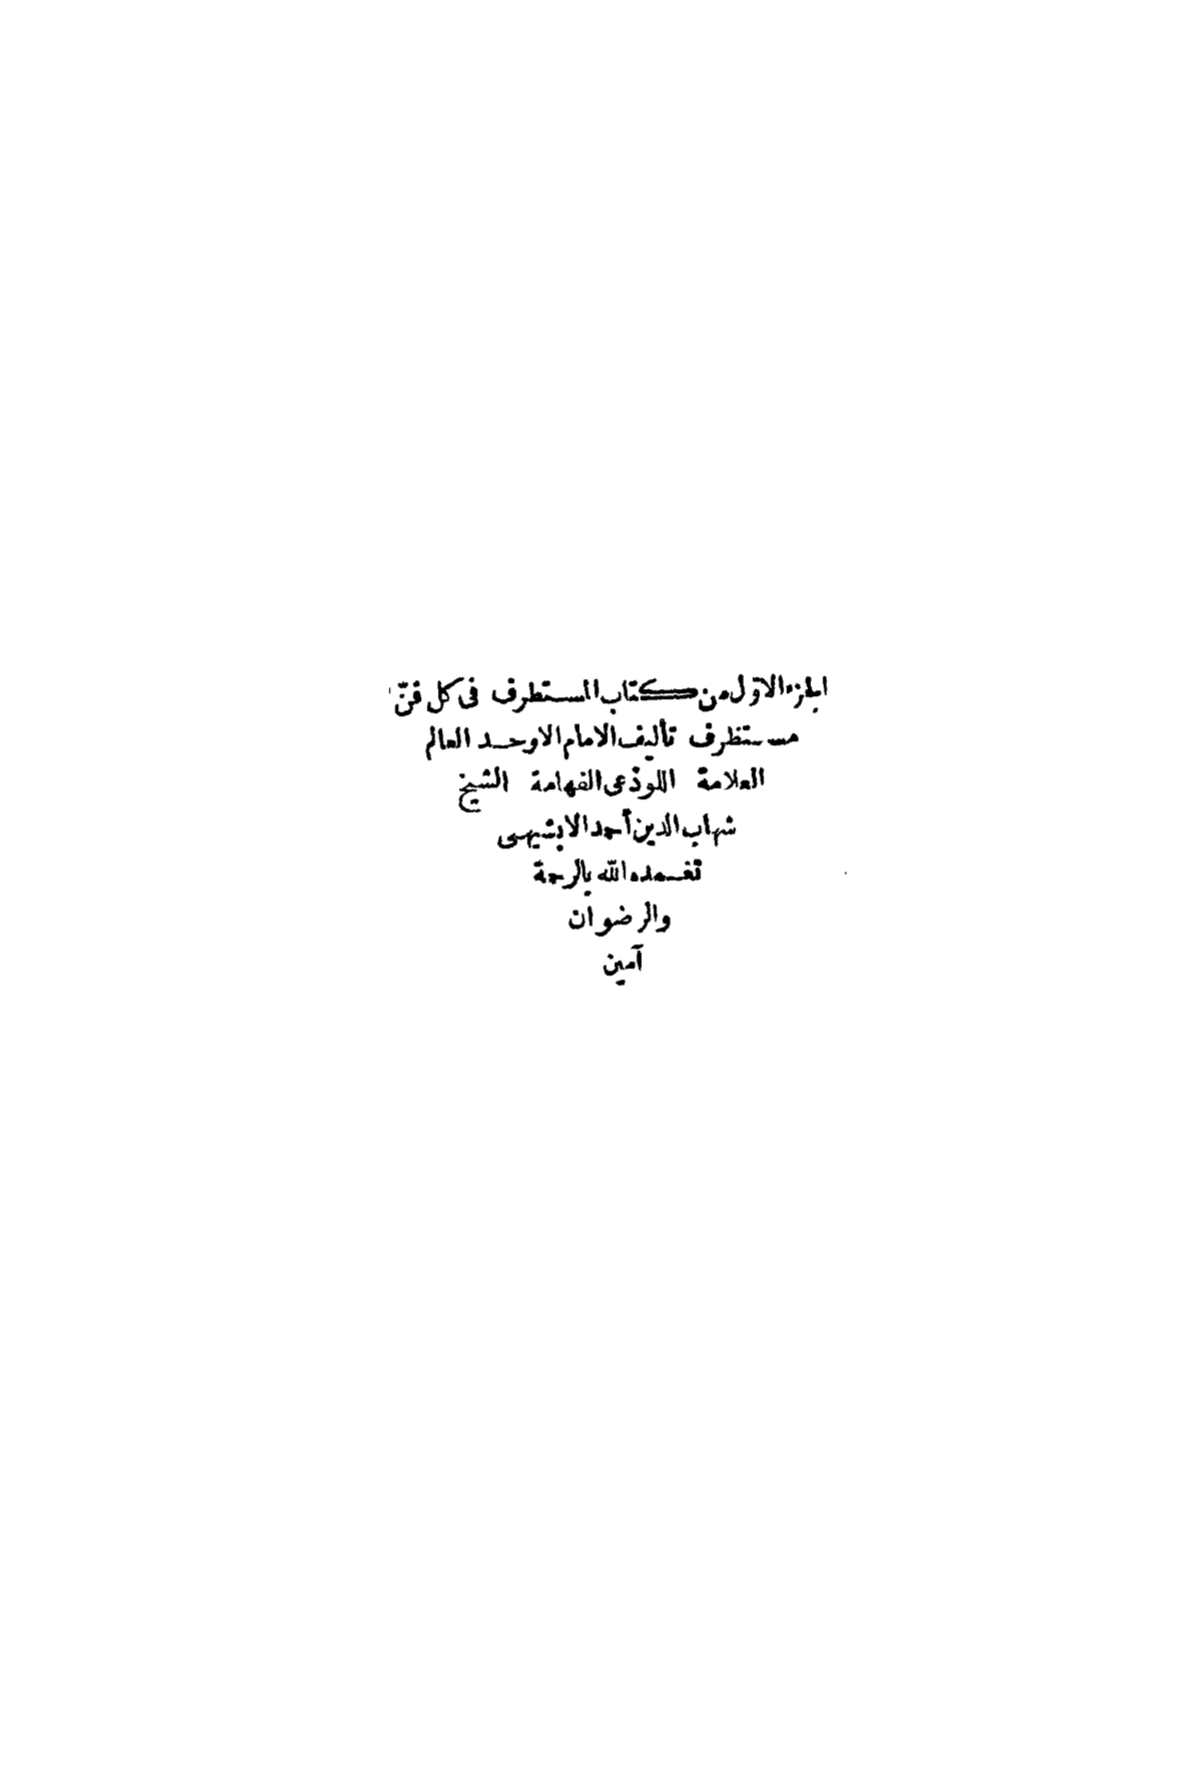 الجزء الاوّل من كتاب المستطرف فى كل فنّ
مستظرف تأليف الامام الاوحد العالم
العلامة اللوذعى الفهامة الشيخ
شهاب الدين أحمد الابشيهى
تغمده الله بالرحمة
والرضوان
آمين